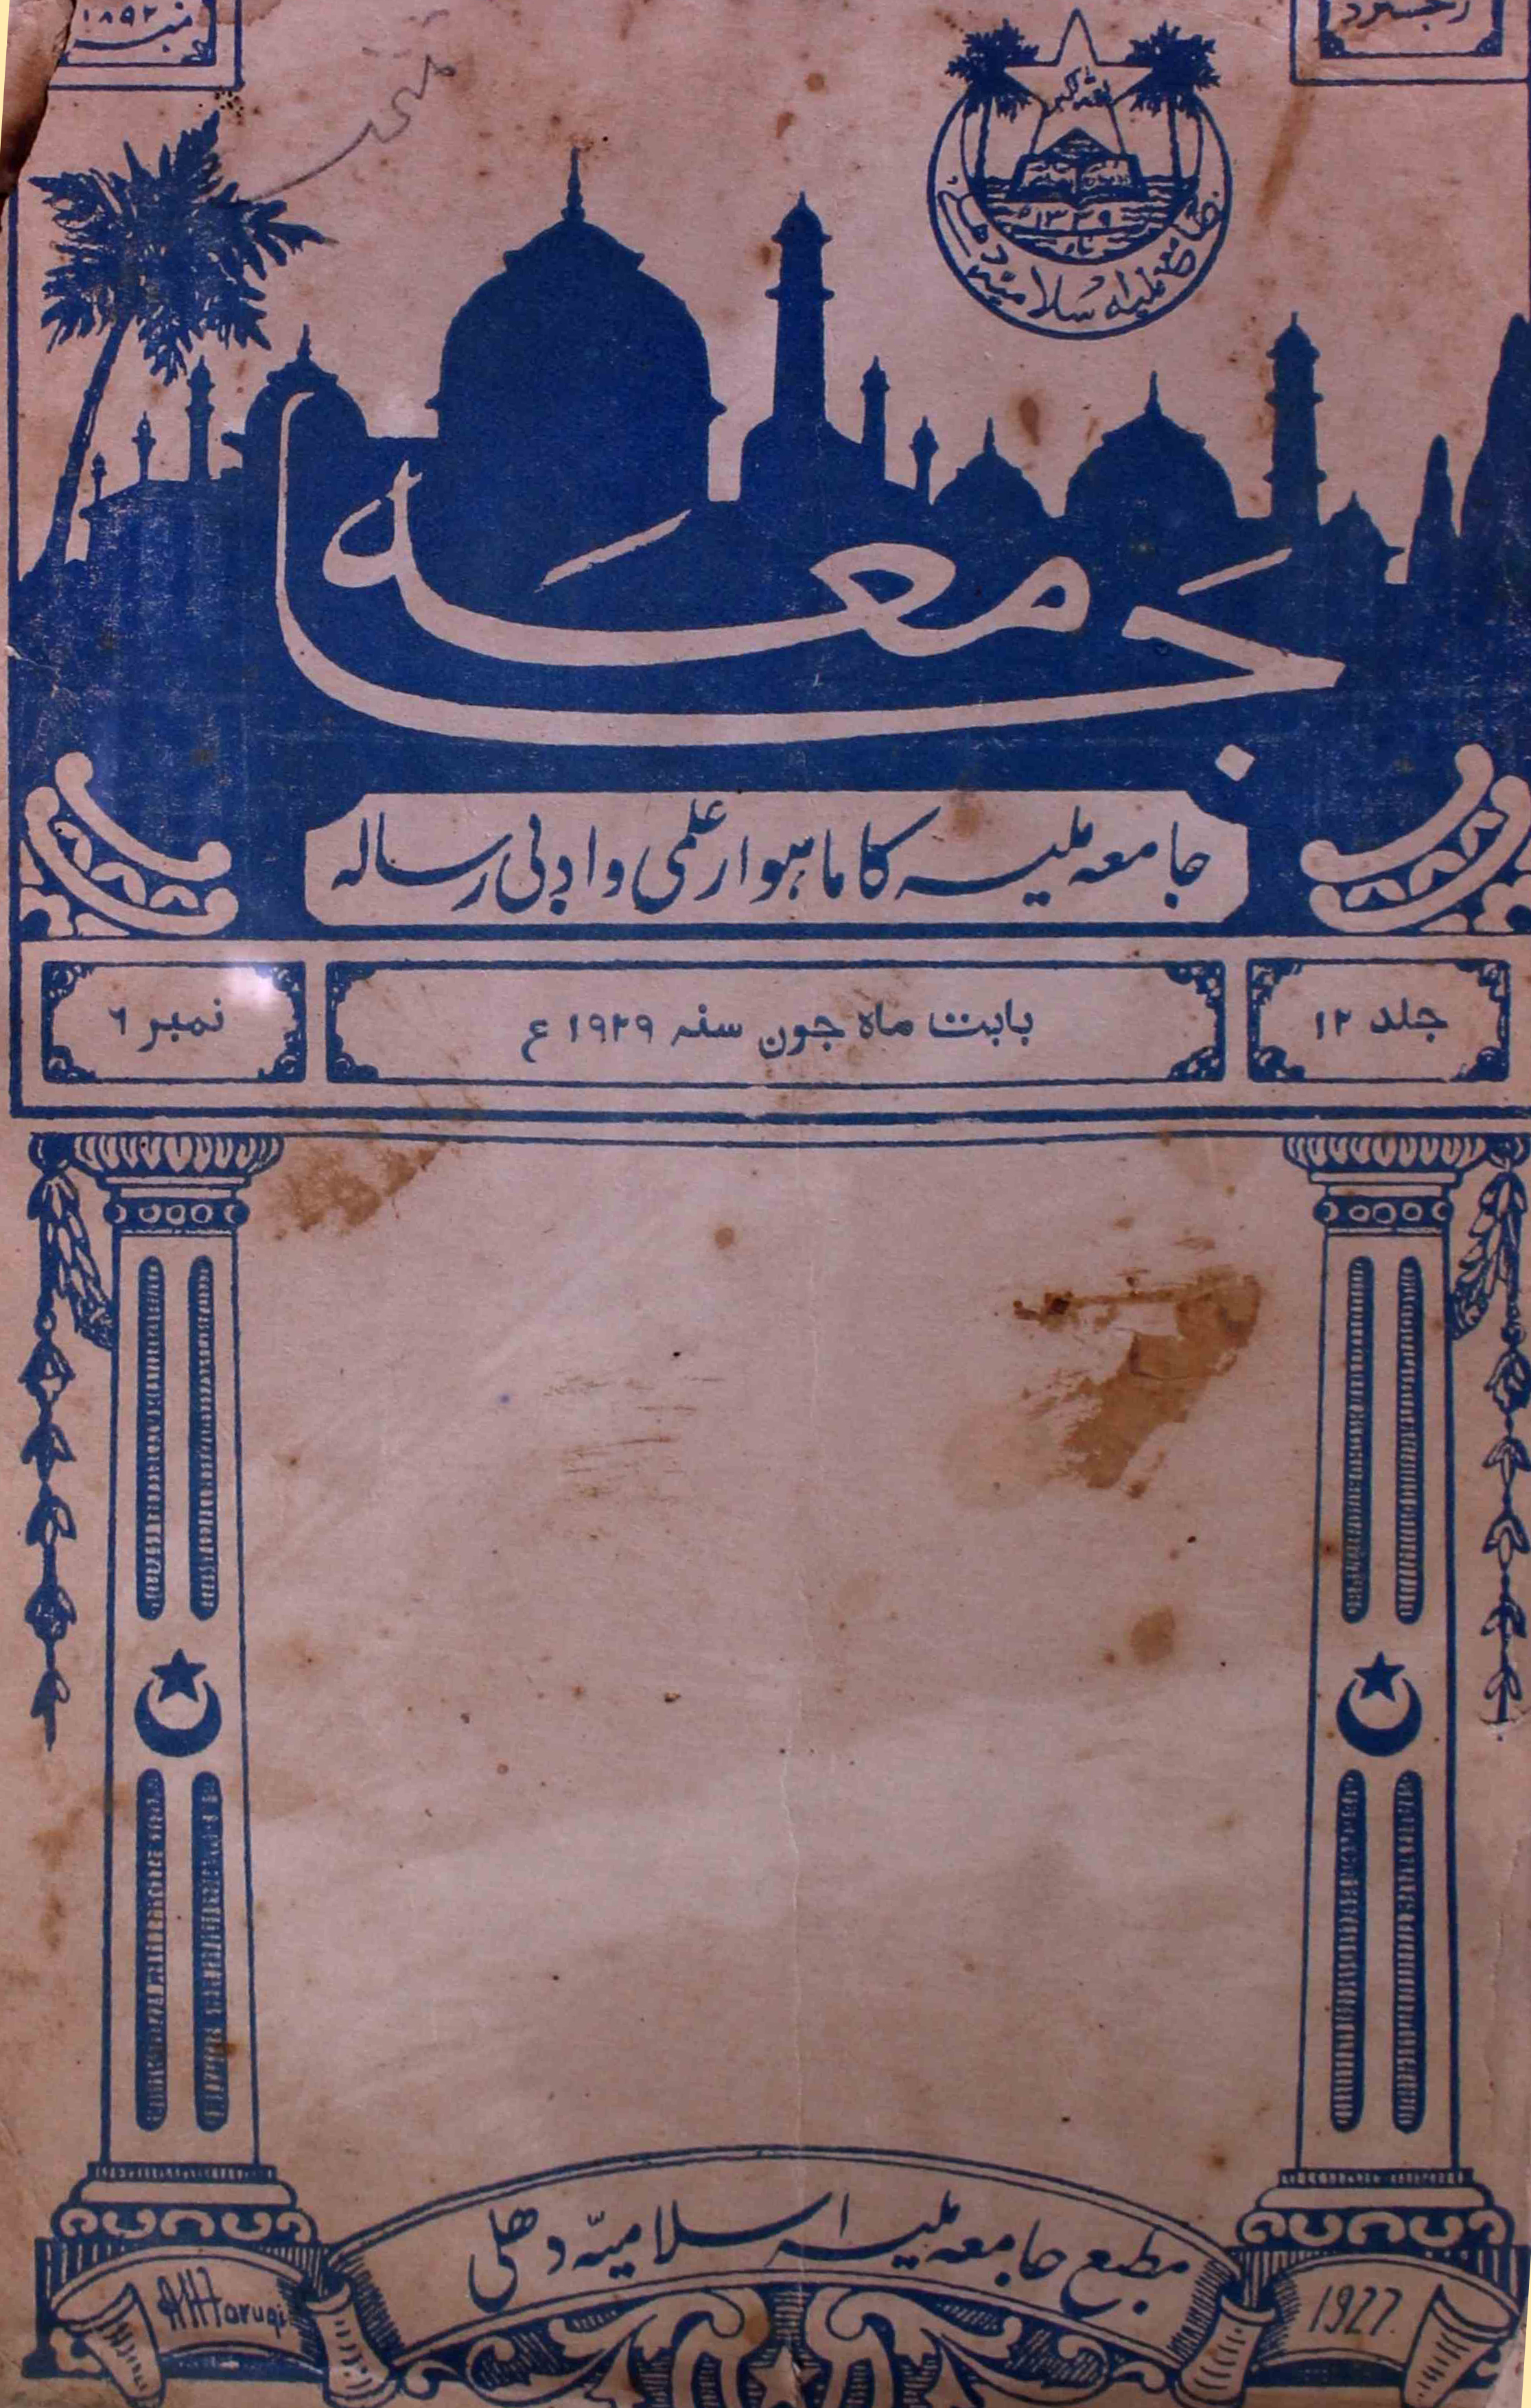 رجسٹرڈ
نمبر ۱۸۹۲
اللہ اکبر
۱۳۳۹
جامعہ ملیہ اسلامیہ دہلی
جامعہ
جامعہ ملیہ کا ماہوار علمی و ادبی رسالہ
جلد ۱۲
بابت ماہ جون سنہ ۱۹۲۹ ع
نمبر ۶
مطبع جامعہ ملیہ اسلامیہ دھلی
1927.